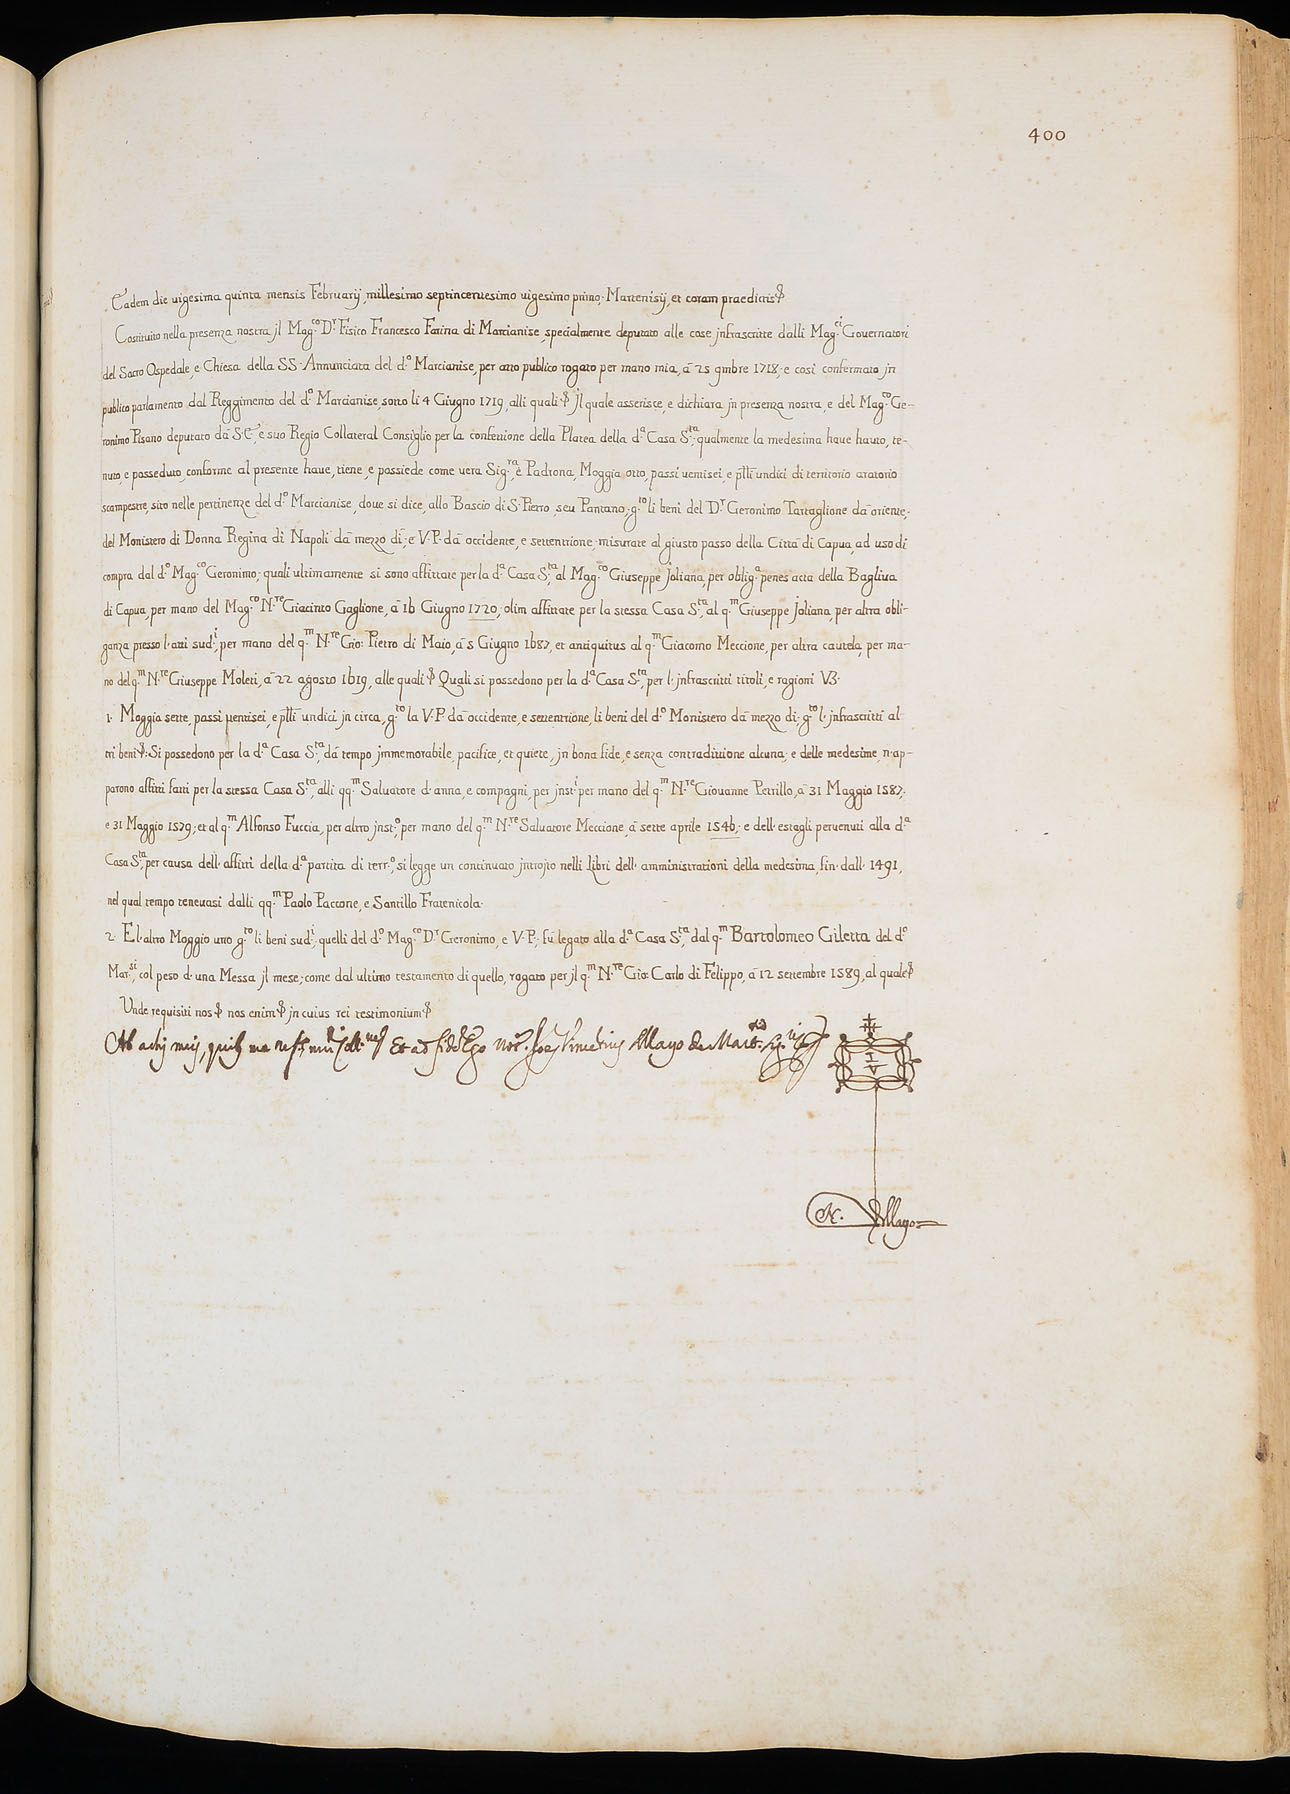 400
Eadem die uigesima quinta mensis Februarij, millesimo septincentesimo uigesimo primo, Martenisij, et coram praedictis
Costituito nella presenza nostra jl Mag.co D.r Fisico Francesco Farina di Marcianise, specialmente deputato alle cose jnfrascritte dalli Mag.ci Governatori
del Sacro Ospedale, e Chiesa della SS. Annunciata del d.o Marcianise, per atto publico rogato per mano mia, à 25 9mbre 1718; e così confermato jn
publico parlamento dal Reggimento del d.o Marcianise, sotto li 4 Giugno 1719, alli quali jl quale asserisce, e dichiara jn presenza nostra, e del Mag.co Ge-
ronimo Pisano deputato dà S.E., e suo Regio Collateral Consiglio per la confettione della Platea della d.a Casa S.ta, qualmente la medesima haue hauto, te-
nuto, e posseduto, conforme al presente haue, tiene, e possiede come uera Sig.ra, e Padrona, Moggia otto, passi uentisei, e p̄tti undici di territorio aratorio
scampestre, sito nelle pertinenze del d.o Marcianise, doue si dice, allo Bascio di S. Pietro, seu Pantano; g.to li beni del D.r Geronimo Tartaglione dà oriente,
del Monistero di Donna Regina di Napoli dà mezzo dì, e V.P. dà occidente, e settentrione; misurate al giusto passo della Città di Capua, ad uso di
compra dal d.o Mag.co Geronimo; quali ultimamente si sono affittate per la d.a Casa S.ta, al Mag.co Giuseppe Joliana, per oblig.a penes acta della Bagliua
di Capua, per mano del Mag.co N.re Giacinto Gaglione, à 16 Giugno 1720; olim affittate per la stessa Casa S.ta, al q.m Giuseppe Joliana, per altra obli-
ganza presso l'atti sud.i, per mano del q.m N.re Gio: Pietro di Maio, à 5 Giugno 1687, et antiquitus al q.m Giacomo Meccione, per altra cautela, per ma-
no del q.m N.re Giuseppe Moleti, à 22 agosto 1619, alle quali Quali si possedono per la d.a Casa S.ta, per l'jnfrascritti titoli, e ragioni V3.
1. Moggia sette, passi uentisei, e p̄tti undici jn circa, g.to la V.P. dà occidente, e settentrione, li beni del d.o Monistero dà mezzo dì, g.to l'jnfrascritti al-
tri beni. Si possedono per la d.a Casa S.ta, dà tempo jmmemorabile, pacifice, et quiete, jn bona fide, e senza contradittione alcuna; e delle medesime, n'ap-
parono affitti fatti per la stessa Casa S.ta, alli qq.m Salvatore d'anna, e compagni, per jnst.i per mano del q.m N.re Giouanne Petrillo, à 31 Maggio 1587;
e 31 Maggio 1579; et al q.m Alfonso Fuccia, per altro jnst.o per mano del q.m N.re Saluatore Meccione, à sette aprile 1546; e dell'estagli peruenuti alla d.a
Casa S.ta, per causa dell'affitti della d.a partita di terr.o, si legge un continuato jntroito nelli Libri dell'amministrationi della medesima, fin dall'1491,
nel qual tempo teneuasi dalli qq.m Paolo Paccone, e Santillo Fratenicola.
2. E l'altro Moggio uno g.to li beni sud.i, quelli del d.o Mag.co D.r Geronimo, e V.P.; fù legato alla d.a Casa S.ta, dal q.m Bartolomeo Giletta del d.o
Mar.si, col peso d'una Messa jl mese; come dal ultimo testamento di quello, rogato per jl q.m N.re Gio: Carlo di Felippo, à 12 settembre 1589, al quale
Unde requisiti nos nos enim jn cuius rei testimonium
Ab actis meis, Et ad fidem Ego Not.
I V
N. Allago